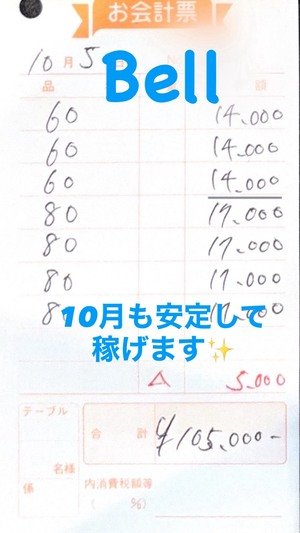 お会計票
10月5
Bell
品 額
60 14.000
60 14.000
60 14.000
80 17.000
80 17.000
80 17.000
8
10月も安定して
稼げます✨
△ 5.000
テーブル
合計 ¥105.000-
名様
係 内消費税額等
( %)